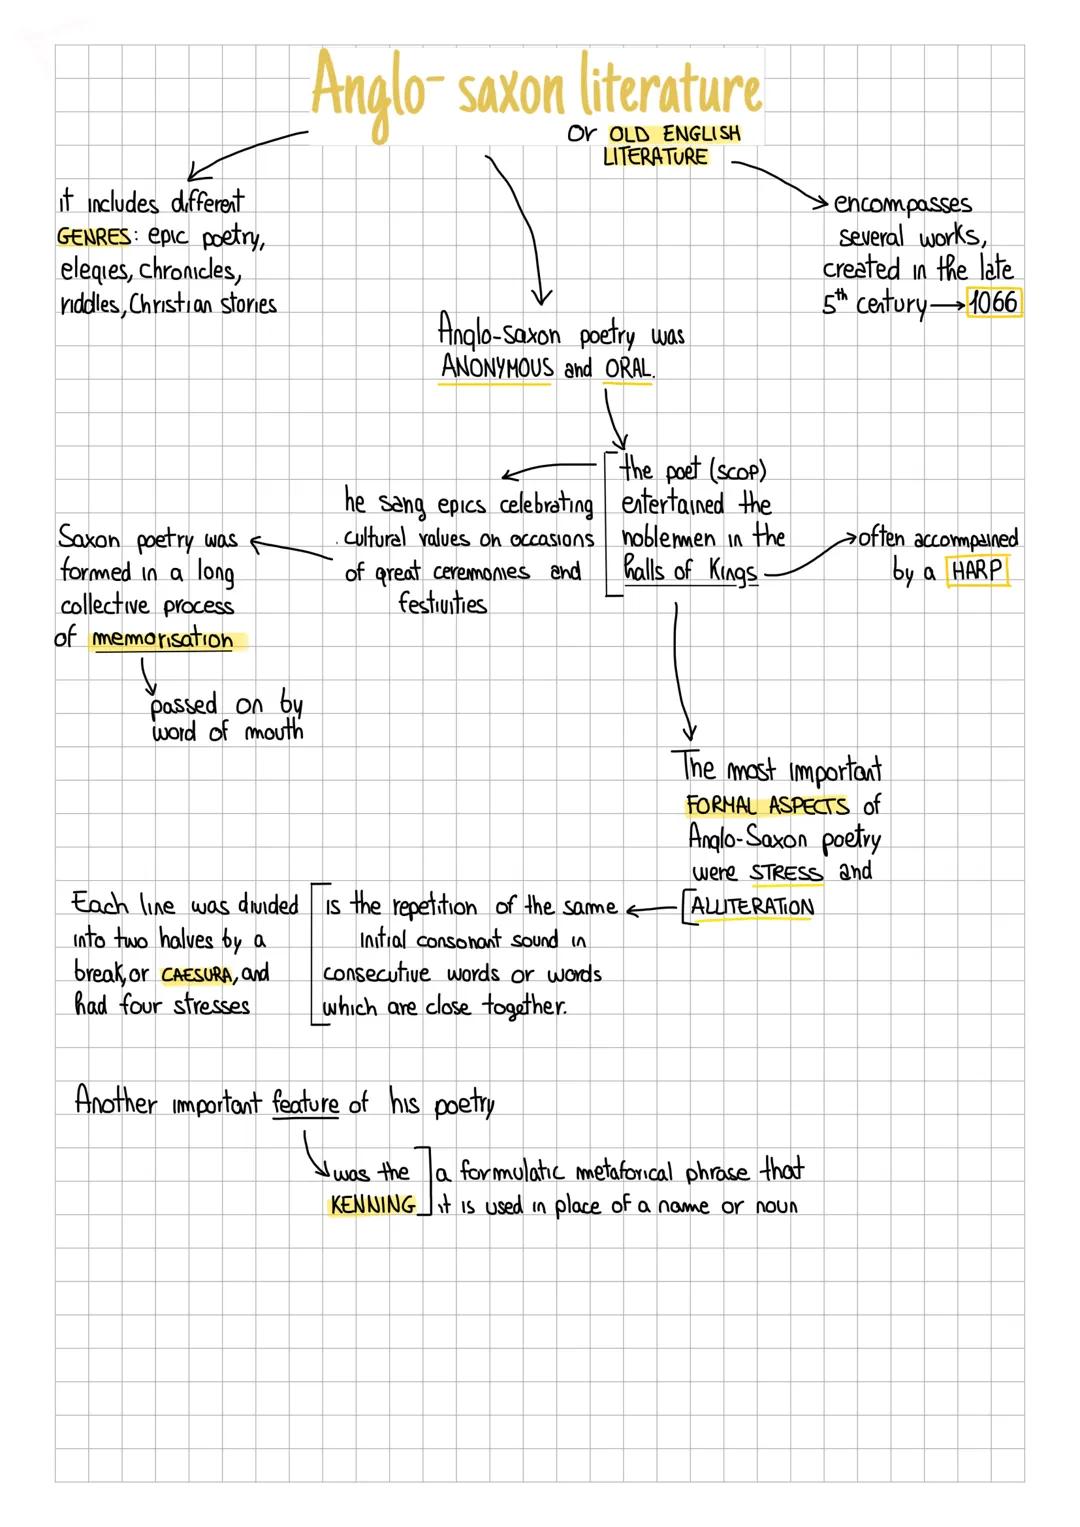 Anglo-saxon literature
Or OLD ENGLISH
LITERATURE
it includes different
GENRES: epic poetry,
elegies, chronicles,
riddles, Christian stories
encompasses
several works,
created in the late
5th century → 1066
Anglo-Saxon poetry was
ANONYMOUS and ORAL.
the poet (SCOP)
entertained the
noblemen in the
halls of Kings
he sang epics celebrating
cultural values on occasions
of great ceremonies and
festivities
often accompained
by a HARP
Saxon poetry was
formed in a long
collective process
of memorisation
passed on by
word of mouth
The most important
FORMAL ASPECTS of
Anglo-Saxon poetry
were STRESS and
ALLITERATION
is the repetition of the same
initial consonant sound in
consecutive words or words
which are close together.
Each line was divided
into two halves by a
break, or CAESURA, and
had four stresses
Another important feature of his poetry
was the
KENNING
a formulatic metaforical phrase that
it is used in place of a name or noun